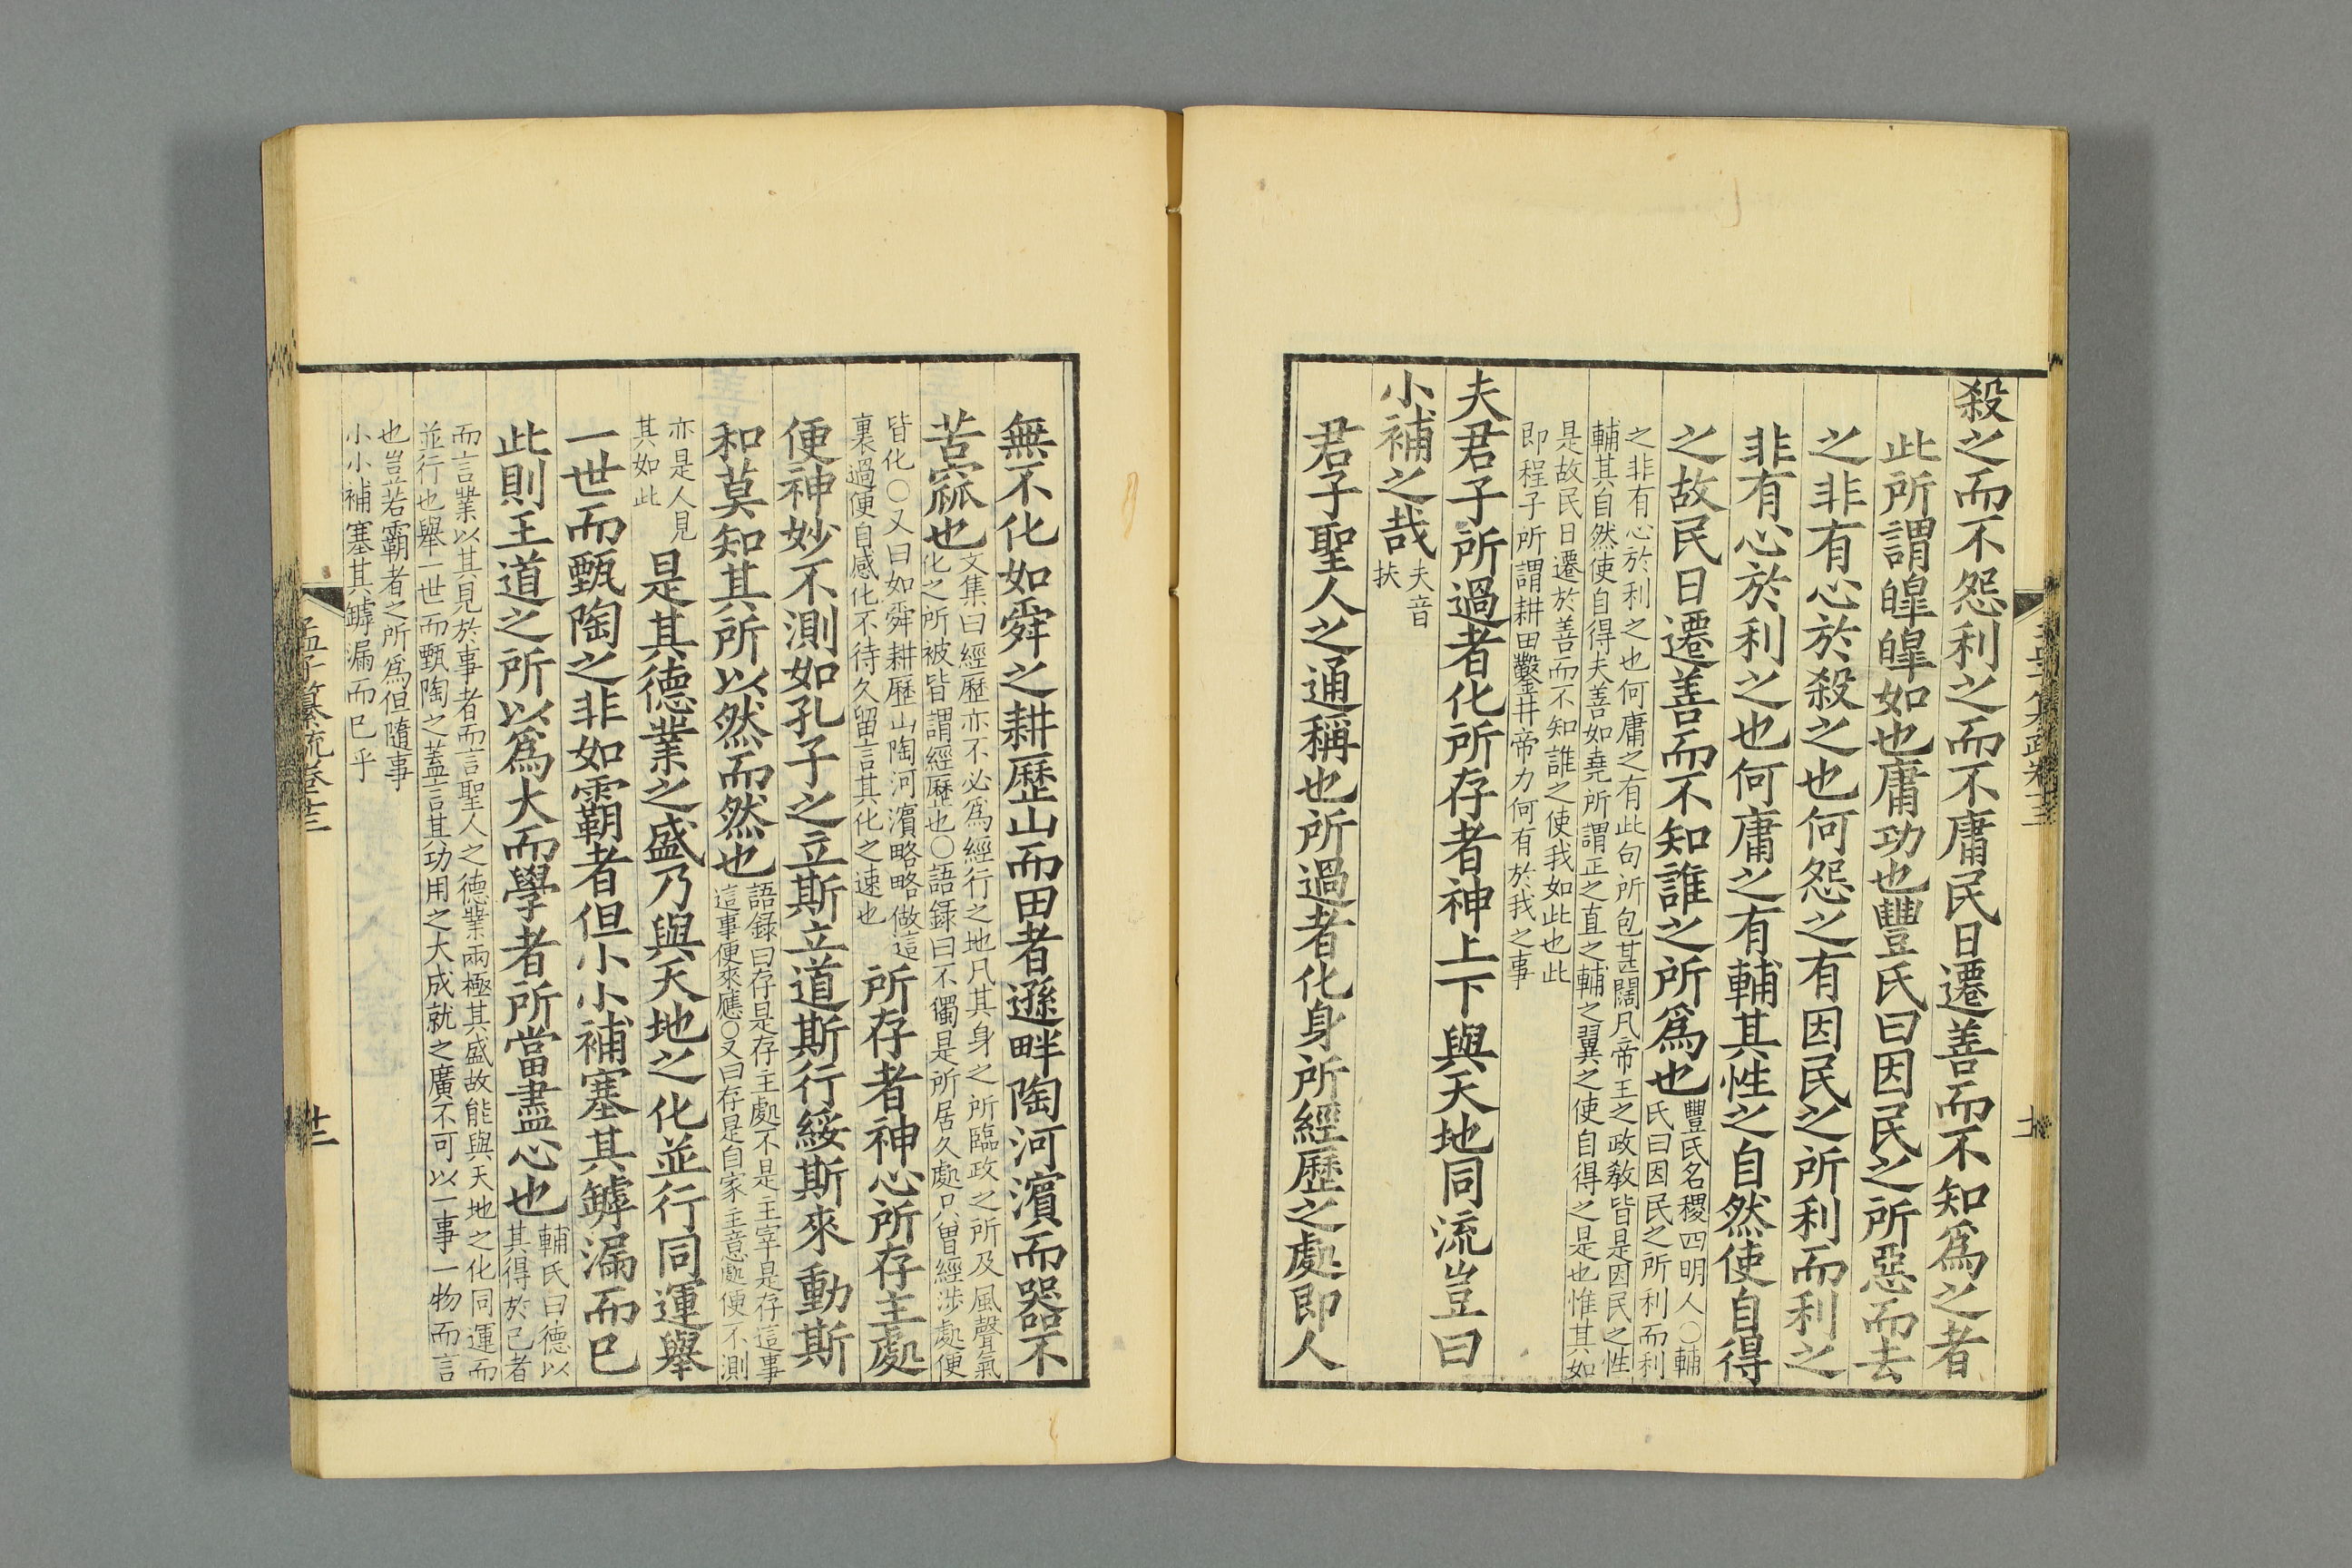 殺之而不怨利之而不庸民日遷善而不知爲之者
此所謂皥皥如也庸功也豐氏曰因民之所惡而去
之非有心於殺之也何怨之有因民之所利而利之
非有心於利之也何庸之有輔其性之自然使自得
之故民日遷善而不知誰之所爲也
豐氏名稷四明人〇輔
氏曰因民之所利而利
之非有心於利之也何庸之有此句所包甚闊凡帝王之政敎皆是因民之性
輔其自然使自得夫善如堯所謂正之直之輔之翼之使自得之是也惟其如
是故民日遷於善而不知誰之使我如此也此
即程子所謂耕田鑿井帝力何有於我之事
夫君子所過者化所存者神上下與天地同流豈曰
小補之哉
夫音
扶
君子聖人之通稱也所過者化身所經歷之處即人
無不化如舜之耕歷山而田者遜畔陶河濱而器不
苦窳也
文集曰經歷亦不必爲經行之地凡其身之所臨政之所及風聲氣
化之所被皆謂經歷也〇語録曰不獨是所居久處只曾經涉處便
皆化〇又曰如舜耕歷山陶河濱略略做這
裏過便自感化不待久留言其化之速也
所存者神心所存主處
便神妙不測如孔子之立斯立道斯行綏斯來動斯
和莫知其所以然而然也
語録曰存是存主處不是主宰是存這事
這事便來應〇又曰存是自家主意處便不測
亦是人見
其如此
是其德業之盛乃與天地之化並行同運舉
一世而甄陶之非如霸者但小小補塞其罅漏而已
此則王道之所以爲大而學者所當盡心也
輔氏曰德以
其得於己者
而言業以其見於事者而言聖人之德業兩極其盛故能與天地之化同運而
並行也舉一世而甄陶之蓋言其功用之大成就之廣不可以一事一物而言
也豈若霸者之所爲但隨事
小小補塞其罅漏而已乎
孟子纂疏卷十三
十二